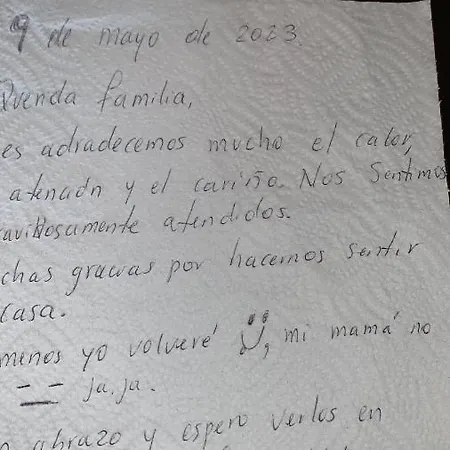 9 de mayo de 2023.
Querida familia,
es adradecemos mucho el calor,
atenadn y el cariño. Nos Sentimos
avillosamente atendidos.
chas gracias por hacernos sentir
casa.
menos yo volveré, mi mamá no
ja, ja.
abrazo y espero verlos en